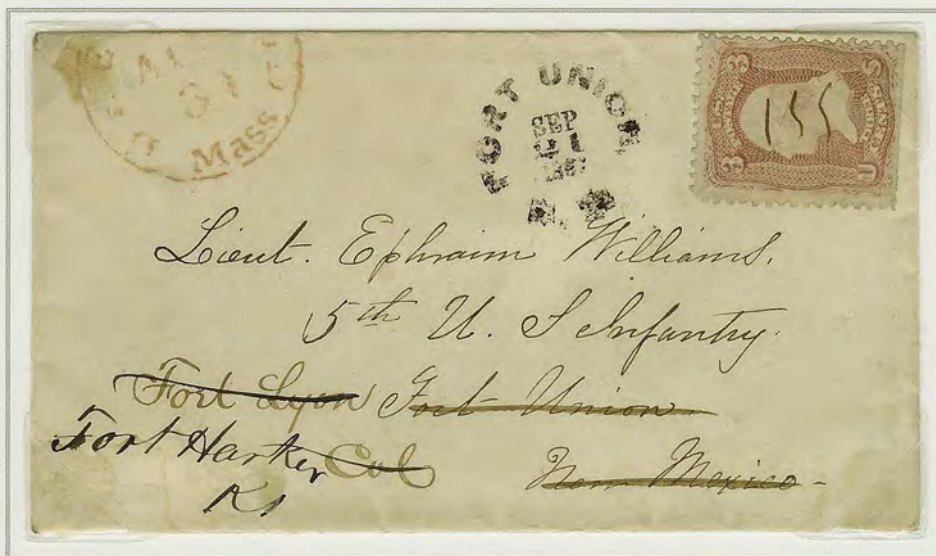 31
Mass
FORT UNION
SEP
21
N. M.
3 3
155
Lieut. Ephraim Williams.
5th U. S Infantry.
Fort Lyon Fort Union.
Fort Harker Col New Mexico -
Ks